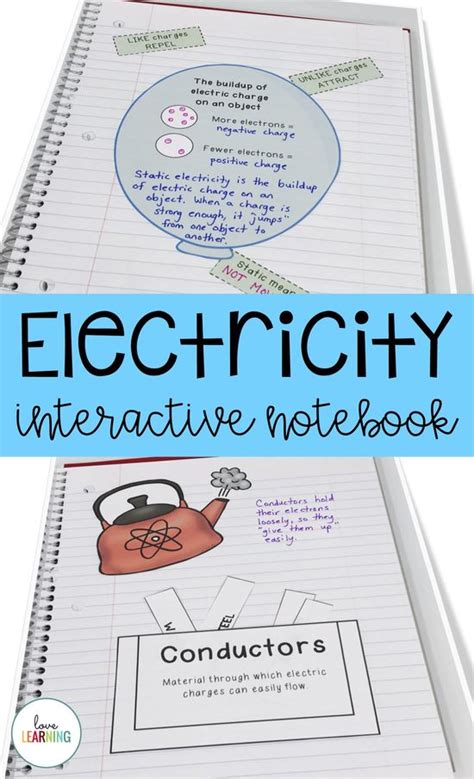 LIKE charges
REPEL
UNLIKE charges
ATTRACT
The buildup of
electric charge
on an object
More electrons =
negative charge
Fewer electrons =
positive charge
Static electricity is the buildup
of electric charge on an
object. When a charge is
strong enough, it "jumps"
from one object to
another.
Static mea
NOT MO
Electricity
interactive notebook
Conductors hold
their electrons
loosely, so they
"give them up"
easily.
EEL
Conductors
Material through which electric
charges can easily flow.
love
LEARNING